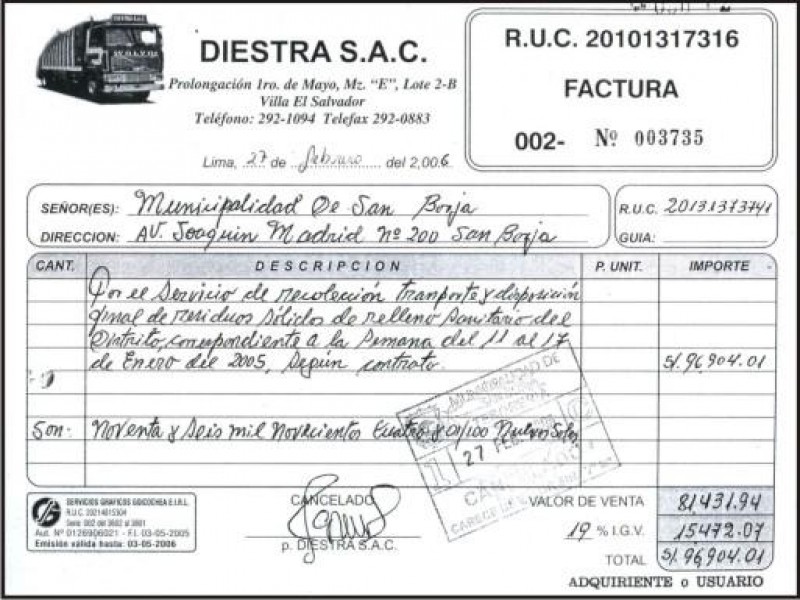 VOLVO
DIESTRA S.A.C.
Prolongación 1ro. de Mayo, Mz. "E", Lote 2-B
Villa El Salvador
Teléfono: 292-1094 Telefax 292-0883
Lima, 27 de febrero del 2,006
R.U.C. 20101317316
FACTURA
002- Nº 003735
SEÑOR(ES): Municipalidad De San Borja
DIRECCION: AV. Joaquin Madrid Nº 200 San Borja
R.U.C. 20131373741
GUIA:
CANT. DESCRIPCION P. UNIT. IMPORTE
Por el Servicio de recolección transporte y disposición
final de residuos sólidos de relleno Sanitario del
Distrito, correspondiente a la Semana del 11 al 17
de Enero del 2005, Según contrato. S/. 96,904.01
Son: Noventa y Seis mil Novecientos Cuatro y 01/100 Nuevos Soles
MUNICIPALIDAD DE
27 FEB
CARECE DE
SERVICIOS GRAFICOS GOICOCHEA E.I.R.L.
R.U.C. 20214815304
Serie 002 del 3602 al 3801
Aut. Nº 0126906021 - F.I. 03-05-2005
Emisión válida hasta: 03-05-2006
CANCELADO
p. DIESTRA S.A.C.
VALOR DE VENTA 81431.94
19 % I.G.V. 15472.07
TOTAL S/. 96,904.01
ADQUIRIENTE o USUARIO